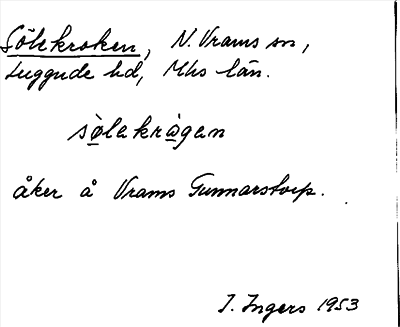 Sölekroken, N. Vrams sn,
Luggude hd, Mhs län.
sòlekrågen
åker å Vrams Gunnarstorp.
I. Ingers 1953